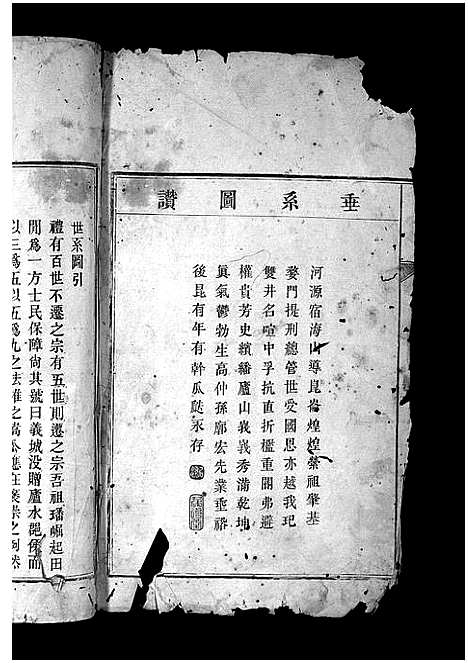 垂系圖讚
河源宿海山導崑崙煌煌縈祖肇基
婺門提刑總管世受國恩亦越我玘
雙井名喧中孚抗直折檻重閣弗避
權貴芳史繽繙廬山義義秀滿乾坤
眞氣鬱勃生高仲孫廓宏先業垂裕
後昆有年有幹瓜瓞永存
世系圖引
禮有百世不遷之宗有五世則遷之宗吾祖璠嵓起田
間為一方士民保障尙其號曰義城没贈廬水 而
以三為五以五為九之法推之